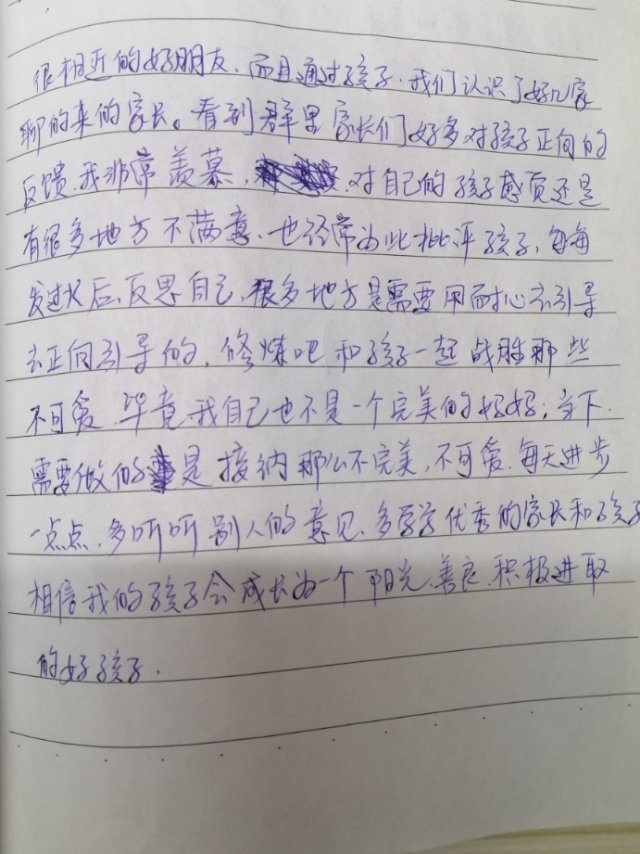 很相近的好朋友、而且通过孩子、我们认识了好几家
聊的来的家长。看到群里家长们好多对孩子正向的
反馈、我非常羡慕、对自己的孩子感觉还是
有很多地方不满意、也经常为此批评孩子，每每
发过火后、反思自己、很多地方是需要用耐心去引导
去正向引导的，修炼吧和孩子一起战胜那些
不可爱、毕竟我自己也不是一个完美的妈妈；当下、
需要做的是接纳那么不完美，不可爱、每天进步
一点点、多听听别人的意见、多学学优秀的家长和孩子
相信我的孩子会成长为一个阳光、善良、积极进取
的好孩子.